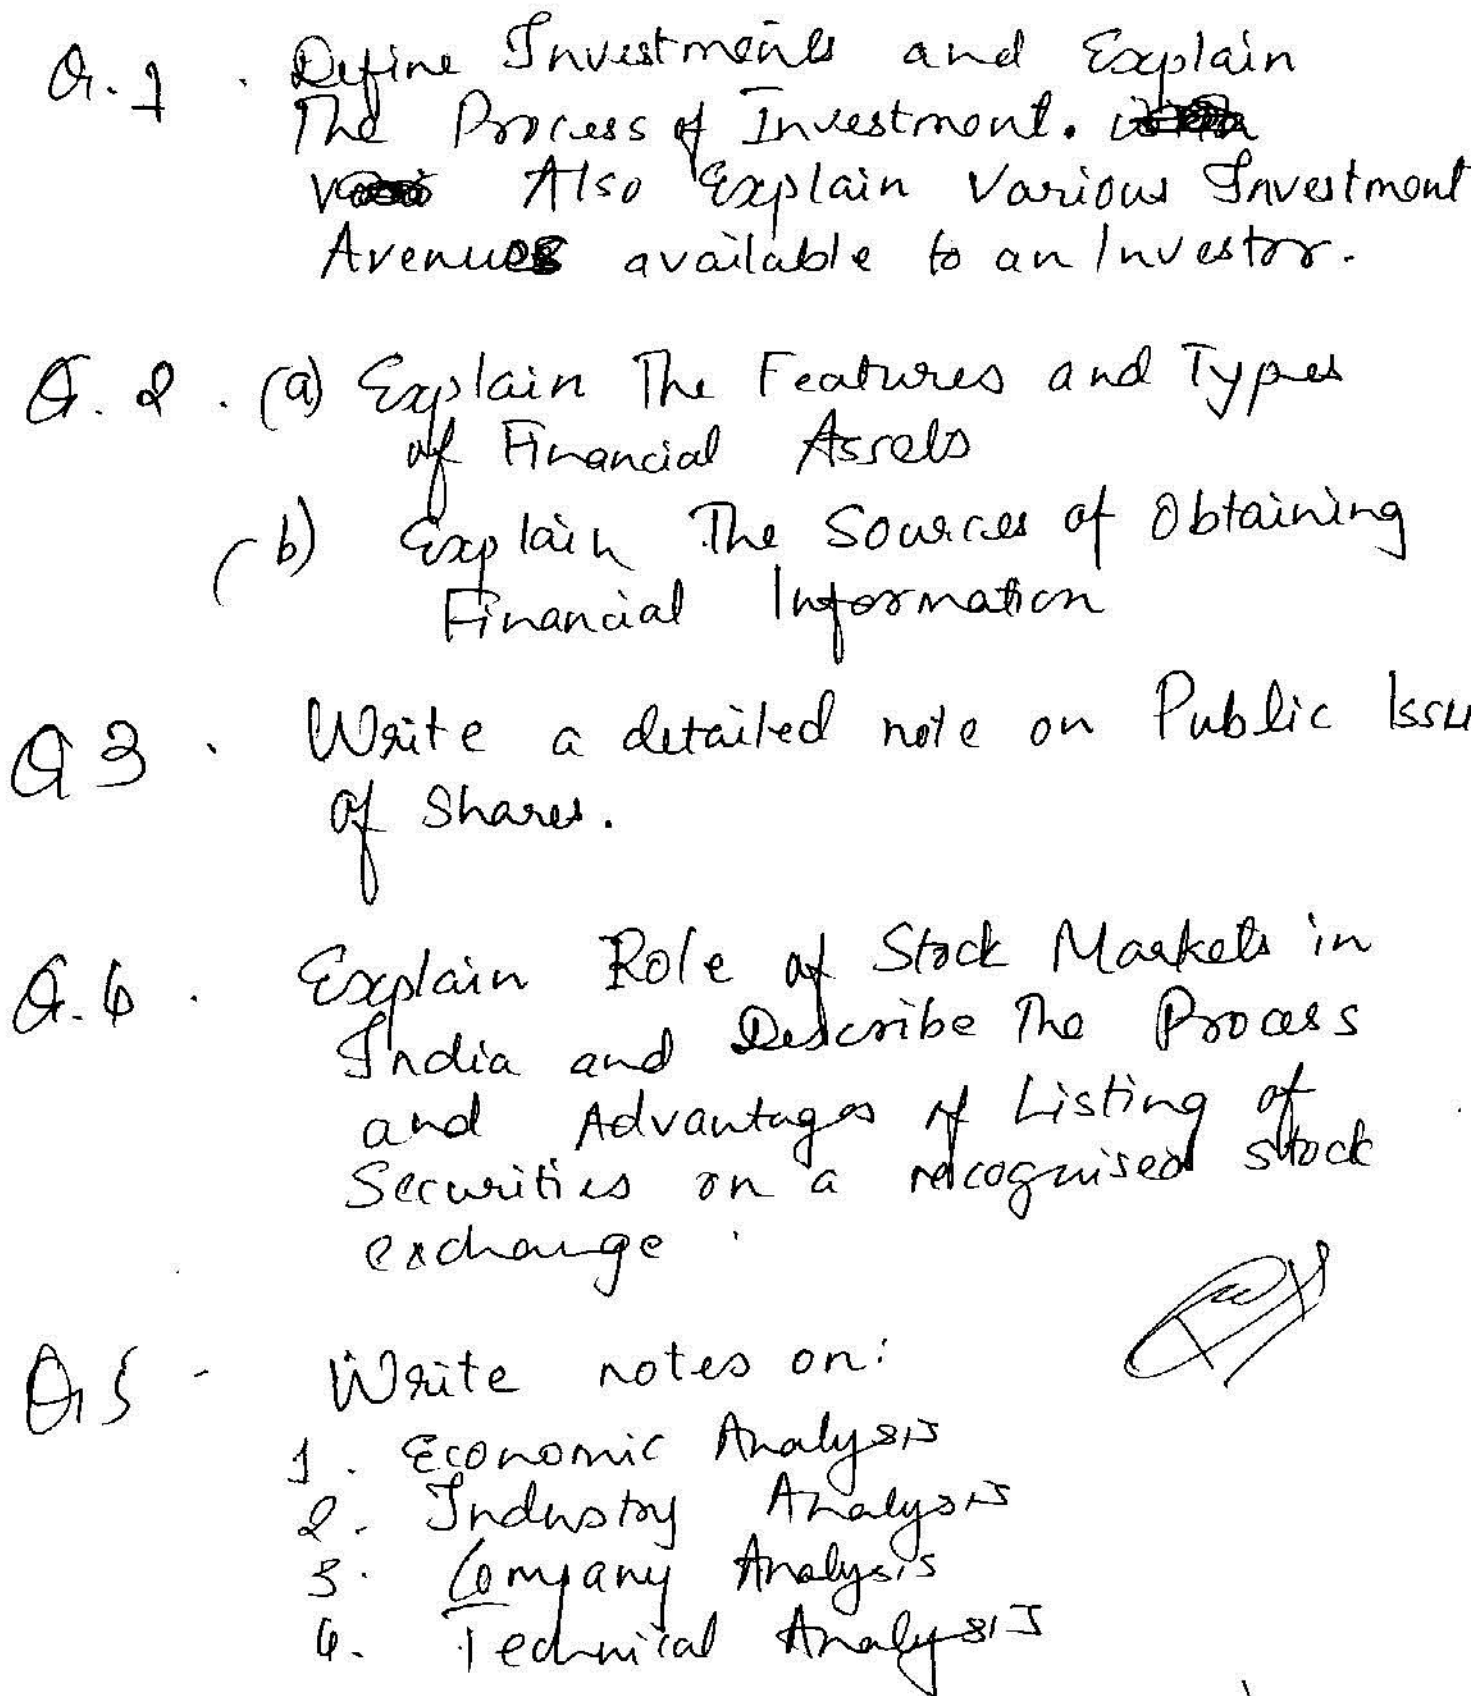 Q.1. Define Investments and Explain
The Process of Investment.
Also Explain Various Investment
Avenues available to an Investor.
Q.2. (a) Explain The Features and Types
of Financial Assets
(b) Explain The Sources of Obtaining
Financial Information
Q3. Write a detailed note on Public Issu
of Shares.
Q.4. Explain Role of Stock Markets in
India and Describe The Process
and Advantages of Listing of
Securities on a recognised stock
exchange.
Q5- Write notes on:
1. Economic Analysis
2. Industry Analysis
3. Company Analysis
4. Technical Analysis